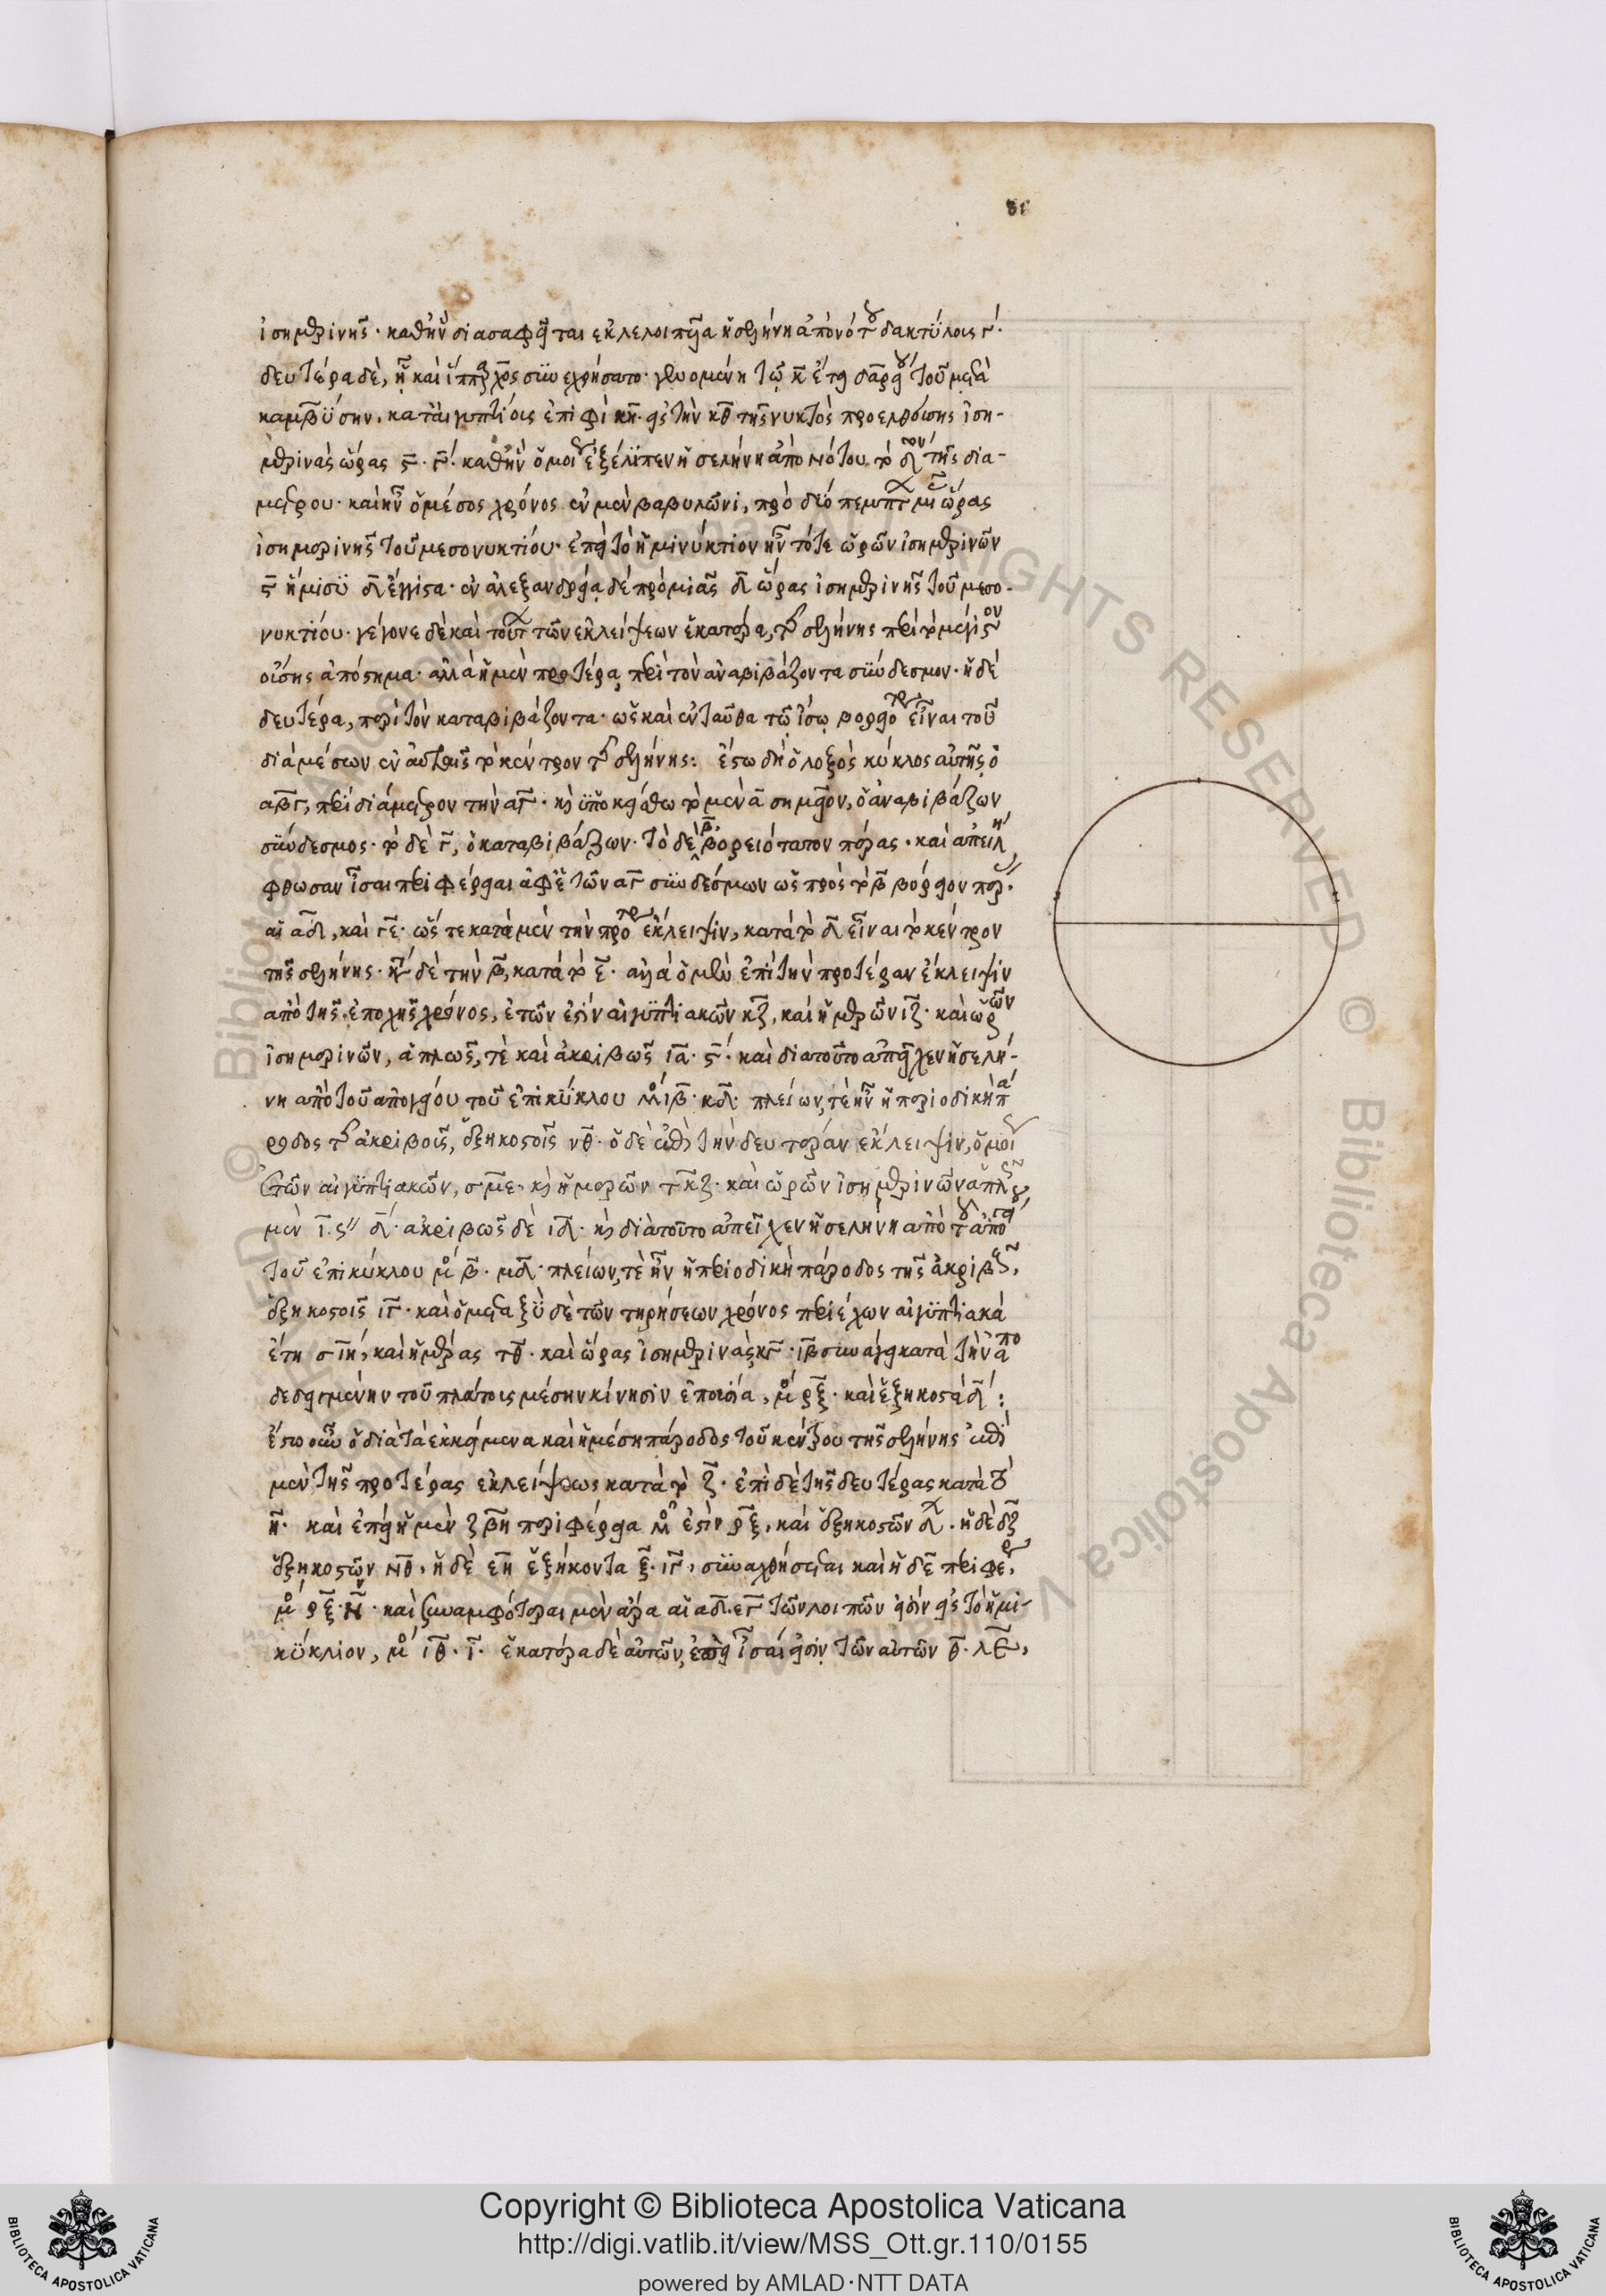 81
ἰσημερινῆς· καθ' ἣν διασαφεῖται ἐκλελοιπυῖα ἡ σελήνη ἀπὸ νότου δακτύλοις γ·
δευτέρα δὲ, ᾗ καὶ ἵππαρχος συνεχρήσατο· γενομένη τῷ κ ἔτει δαρείου τοῦ μετὰ
καμβύσην· κατ' αἰγυπτίοις ἐπιφὶ κη· εἰς τὴν κθ τῆς νυκτὸς προελθούσης ἰση-
μερινὰς ὥρας ς· γ· καθ' ἣν ὁμοίως ἐξέλιπεν ἡ σελήνη ἀπὸ νότου τὸ δον τῆς δια-
μέτρου· καὶ ἦν ὁ μέσος χρόνος ἐν μὲν βαβυλῶνι, πρὸ δύο πεμπτ μιᾶς ὥρας
ἰσημερινῆς τοῦ μεσονυκτίου· ἐπεὶ τὸ ἡμινύκτιον ἦν τότε ὡρῶν ἰσημερινῶν
ς ἥμισυ δ ἔγγιστα· ἐν ἀλεξανδρείᾳ δὲ πρὸ μιᾶς δ ὥρας ἰσημερινῆς τοῦ μεσο-
νυκτίου· γέγονε δὲ καὶ τούτ τῶν ἐκλείψεων ἑκατέρα, τῆς σελήνης περὶ τὸ μέγιστον
οὔσης ἀπόστημα· ἀλλὰ ἡ μὲν προτέρα περὶ τὸν ἀναβιβάζοντα σύνδεσμον· ἡ δὲ
δευτέρα, περὶ τὸν καταβιβάζοντα· ὡς καὶ ἐνταῦθα τῷ ἴσῳ βορειότερον εἶναι τοῦ
διὰ μέσων ἐν αὐταῖς τὸ κέντρον τῆς σελήνης: ἔστω δὴ ὁ λοξὸς κύκλος αὐτῆς ὁ
αβγ, περὶ διάμετρον τὴν αγ· καὶ ὑποκείσθω τὸ μὲν α σημεῖον, ὁ ἀναβιβάζων
σύνδεσμος· τὸ δὲ γ, ὁ καταβιβάζων· τὸ δὲ β βορειότατον πέρας· καὶ ἀπειλή
φθωσαν ἴσαι περιφέρειαι ἀφ' ἑ τῶν αγ συνδέσμων ὡς πρὸς τὸ β βόρειον πέρ
αἱ αδ, καὶ γε· ὥστε κατὰ μὲν τὴν προτέρ ἔκλειψιν, κατὰ τὸ δ εἶναι τὸ κέντρον
τῆς σελήνης· κατὰ δὲ τὴν β, κατὰ τὸ ε· ἀλλὰ ὁ μὲν ἐπὶ τὴν προτέραν ἔκλειψιν
ἀπὸ τῆς ἐποχῆς χρόνος, ἐτῶν ἐστὶν αἰγυπτιακῶν κζ, καὶ ἡμερῶν ιζ· καὶ ὡρῶν
ἰσημερινῶν, ἁπλῶς, τὲ καὶ ἀκριβῶς ια· ς· καὶ διατοῦτο ἀπεῖχεν ἡ σελή-
νη ἀπὸ τοῦ ἀπογείου τοῦ ἐπικύκλου μοί ιβ· κδ· πλείων, τὲ ἦν ἡ περιοδικὴ πά
ροδος τῆς ἀκριβοῦς, ἑξηκοστοῖς νθ· ὁ δὲ ἐπὶ τὴν δευτέραν ἔκλειψιν, ὁμοίως
ἐτῶν αἰγυπτιακῶν, σμε· καὶ ἡμερῶν τκζ· καὶ ὡρῶν ἰσημερινῶν ἁπλῶς
μὲν ι· ς δ· ἀκριβῶς δὲ ιδ· καὶ διατοῦτο ἀπεῖχεν ἡ σελήνη ἀπὸ τοῦ ἀπογεί
τοῦ ἐπικύκλου μο β· μδ· πλείων, τὲ ἦν ἡ περιοδικὴ πάροδος τῆς ἀκριβοῦς,
ἑξηκοστοῖς ιγ· καὶ ὁ μεταξὺ δὲ τῶν τηρήσεων χρόνος περιέχων αἰγυπτιακὰ
ἔτη σιη, καὶ ἡμέρας τθ· καὶ ὥρας ἰσημερινὰς κγ· ιβ συνάγει κατὰ τὴν ἀπο
δεδειγμένην τοῦ πλάτους μέσην κίνησιν ἐποισία, μο ρξ· καὶ ἑξηκοστὰ δ:
ἔστω οὖν ὁ διὰ τὰ ἐκκείμενα καὶ ἡ μέση πάροδος τοῦ κέντρου τῆς σελήνης ἐπὶ
μὲν τῆς προτέρας ἐκλείψεως κατὰ τὸ ζ· ἐπὶ δὲ τῆς δευτέρας κατὰ τὸ
η· καὶ ἐπεὶ ἡ μὲν ζβη περιφέρεια μο ἐστὶν ρξ, καὶ ἑξηκοστῶν δ· ἡ δὲ δζ
ἑξηκοστῶν νθ· ἡ δὲ εη ἑξήκοντα ξ· ιγ, συναχθήσεται καὶ ἡ δε περιφέρ,
μο ρξ· ν· καὶ συναμφότεραι μὲν ἄρα αἱ αδ· εγ τῶν λοιπῶν εἰσὶν εἰς τὸ ἡμι-
κύκλιον, μο ιθ· ι· ἑκατέρα δὲ αὐτῶν, ἐπεὶ ἴσαι εἰσὶν τῶν αὐτῶν θ· λε,
Copyright © Biblioteca Apostolica Vaticana
http://digi.vatlib.it/view/MSS_Ott.gr.110/0155
powered by AMLAD·NTT DATA